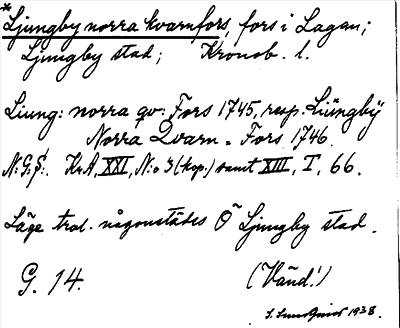 * Ljungby norra kvarnfors, fors i Lagan;
Ljungby stad; Kronob. l.
Liung: norra qv: Fors 1745, resp. Liüngbÿ
Norra Qvarn - Fors 1746.
N:G:S:. KrA, XXI, N:o 3 (kop.) samt XIII, I, 66.
Läge trol. någonstädes Ö Ljungby stad.
G. 14. (Vänd!)
1938.